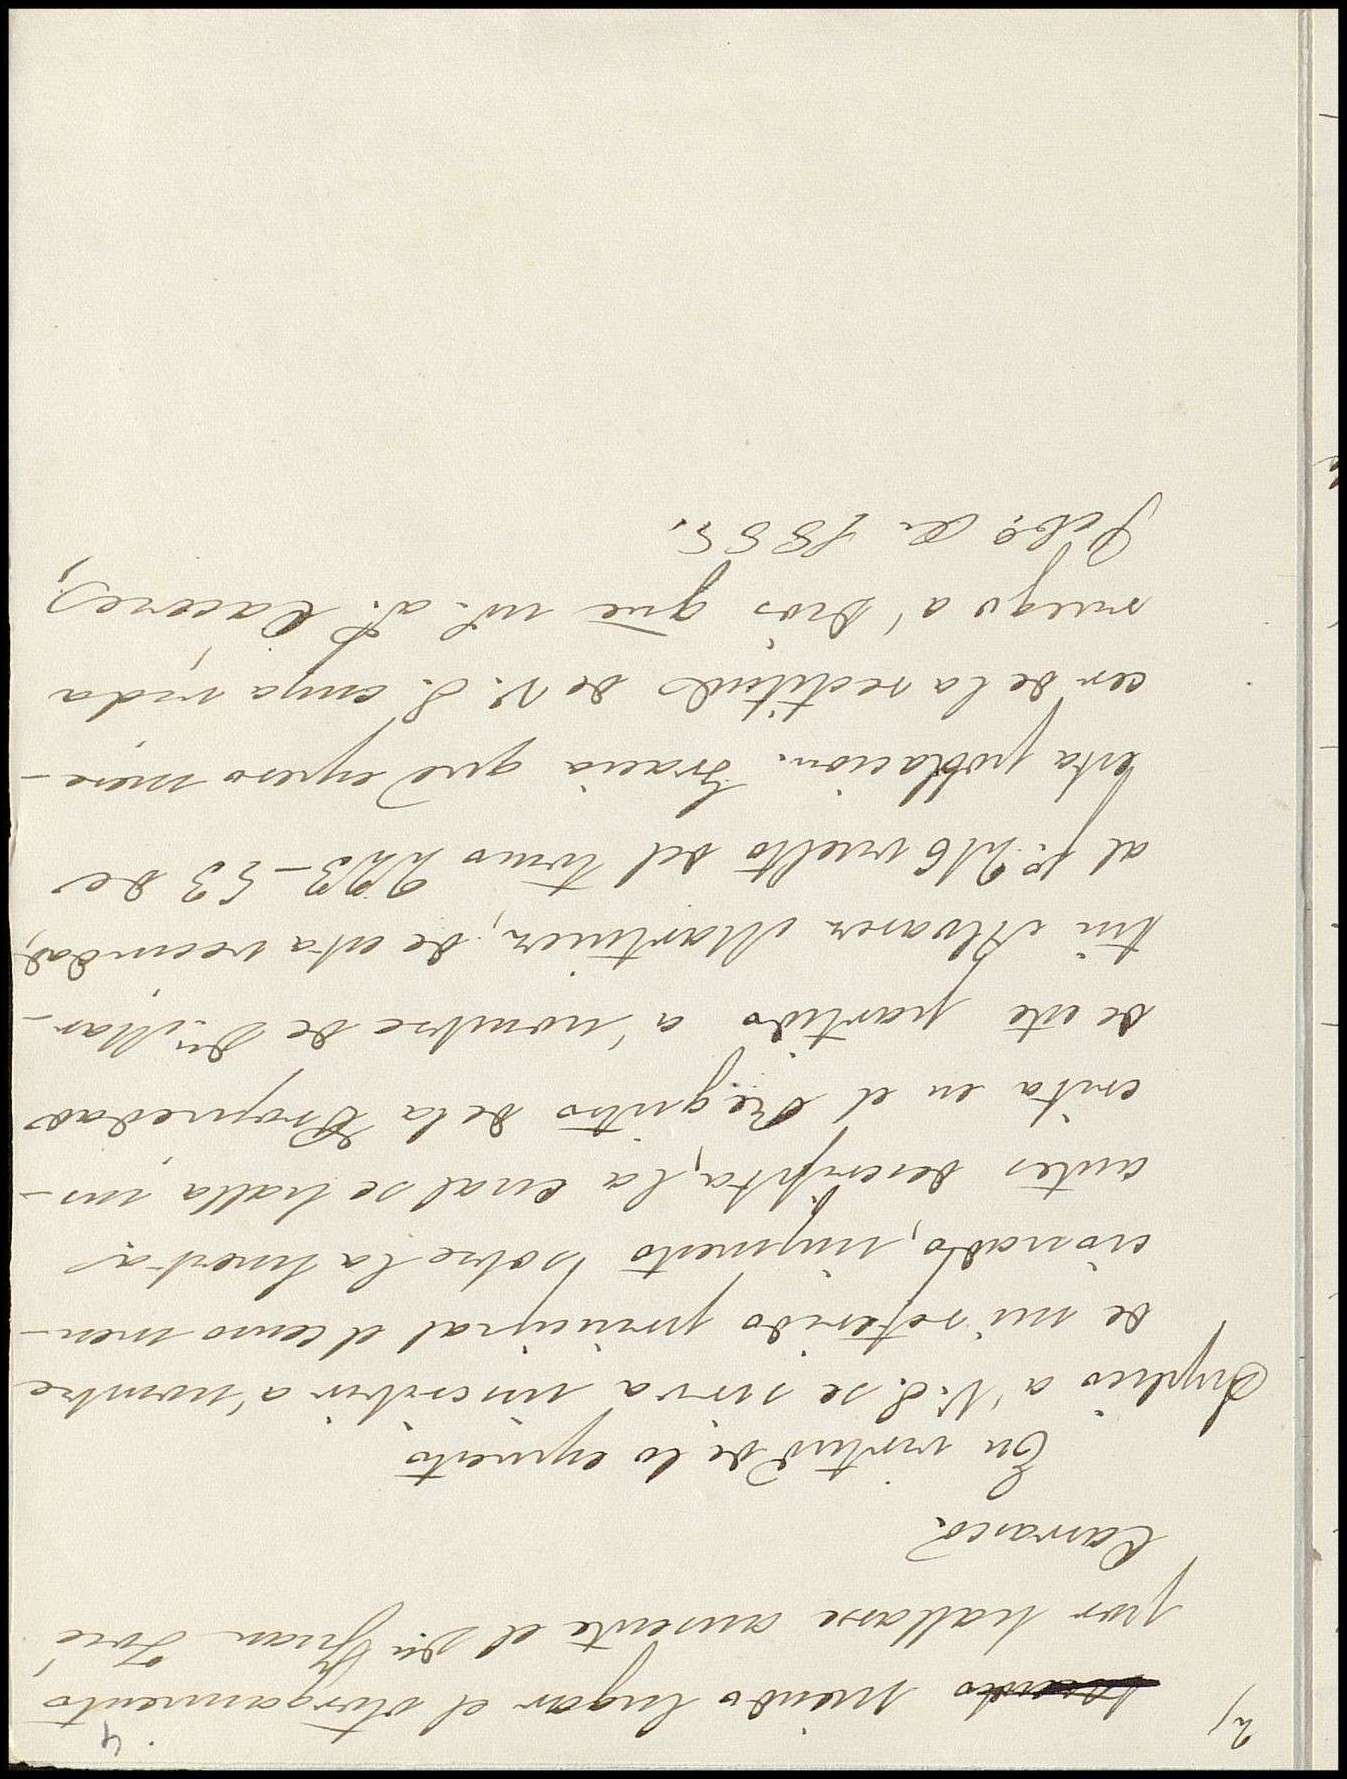 4
2/ teniendo lugar el otorgamiento
por hallarse ausente el Dn Juan José
Carrasco.
En virtud de lo expuesto
Suplico a' V. S. se sirva inscribir a' nombre
de mi referido principal el censo men-
cionado, impuesto sobre la huerta
antes descripta, la cual se halla ins-
crita en el Registro de la Propiedad
de este partido a' nombre de Dn. Mar-
tin Alvarez Martinez, de esta vecindad,
al fº 216 vuelto del tomo 223-53 de
esta poblacion. Gracia que espero mere-
cer de la rectitud de V. S. cuya vida
ruego a' Dios gue ms. as. Caceres,
de 1885.